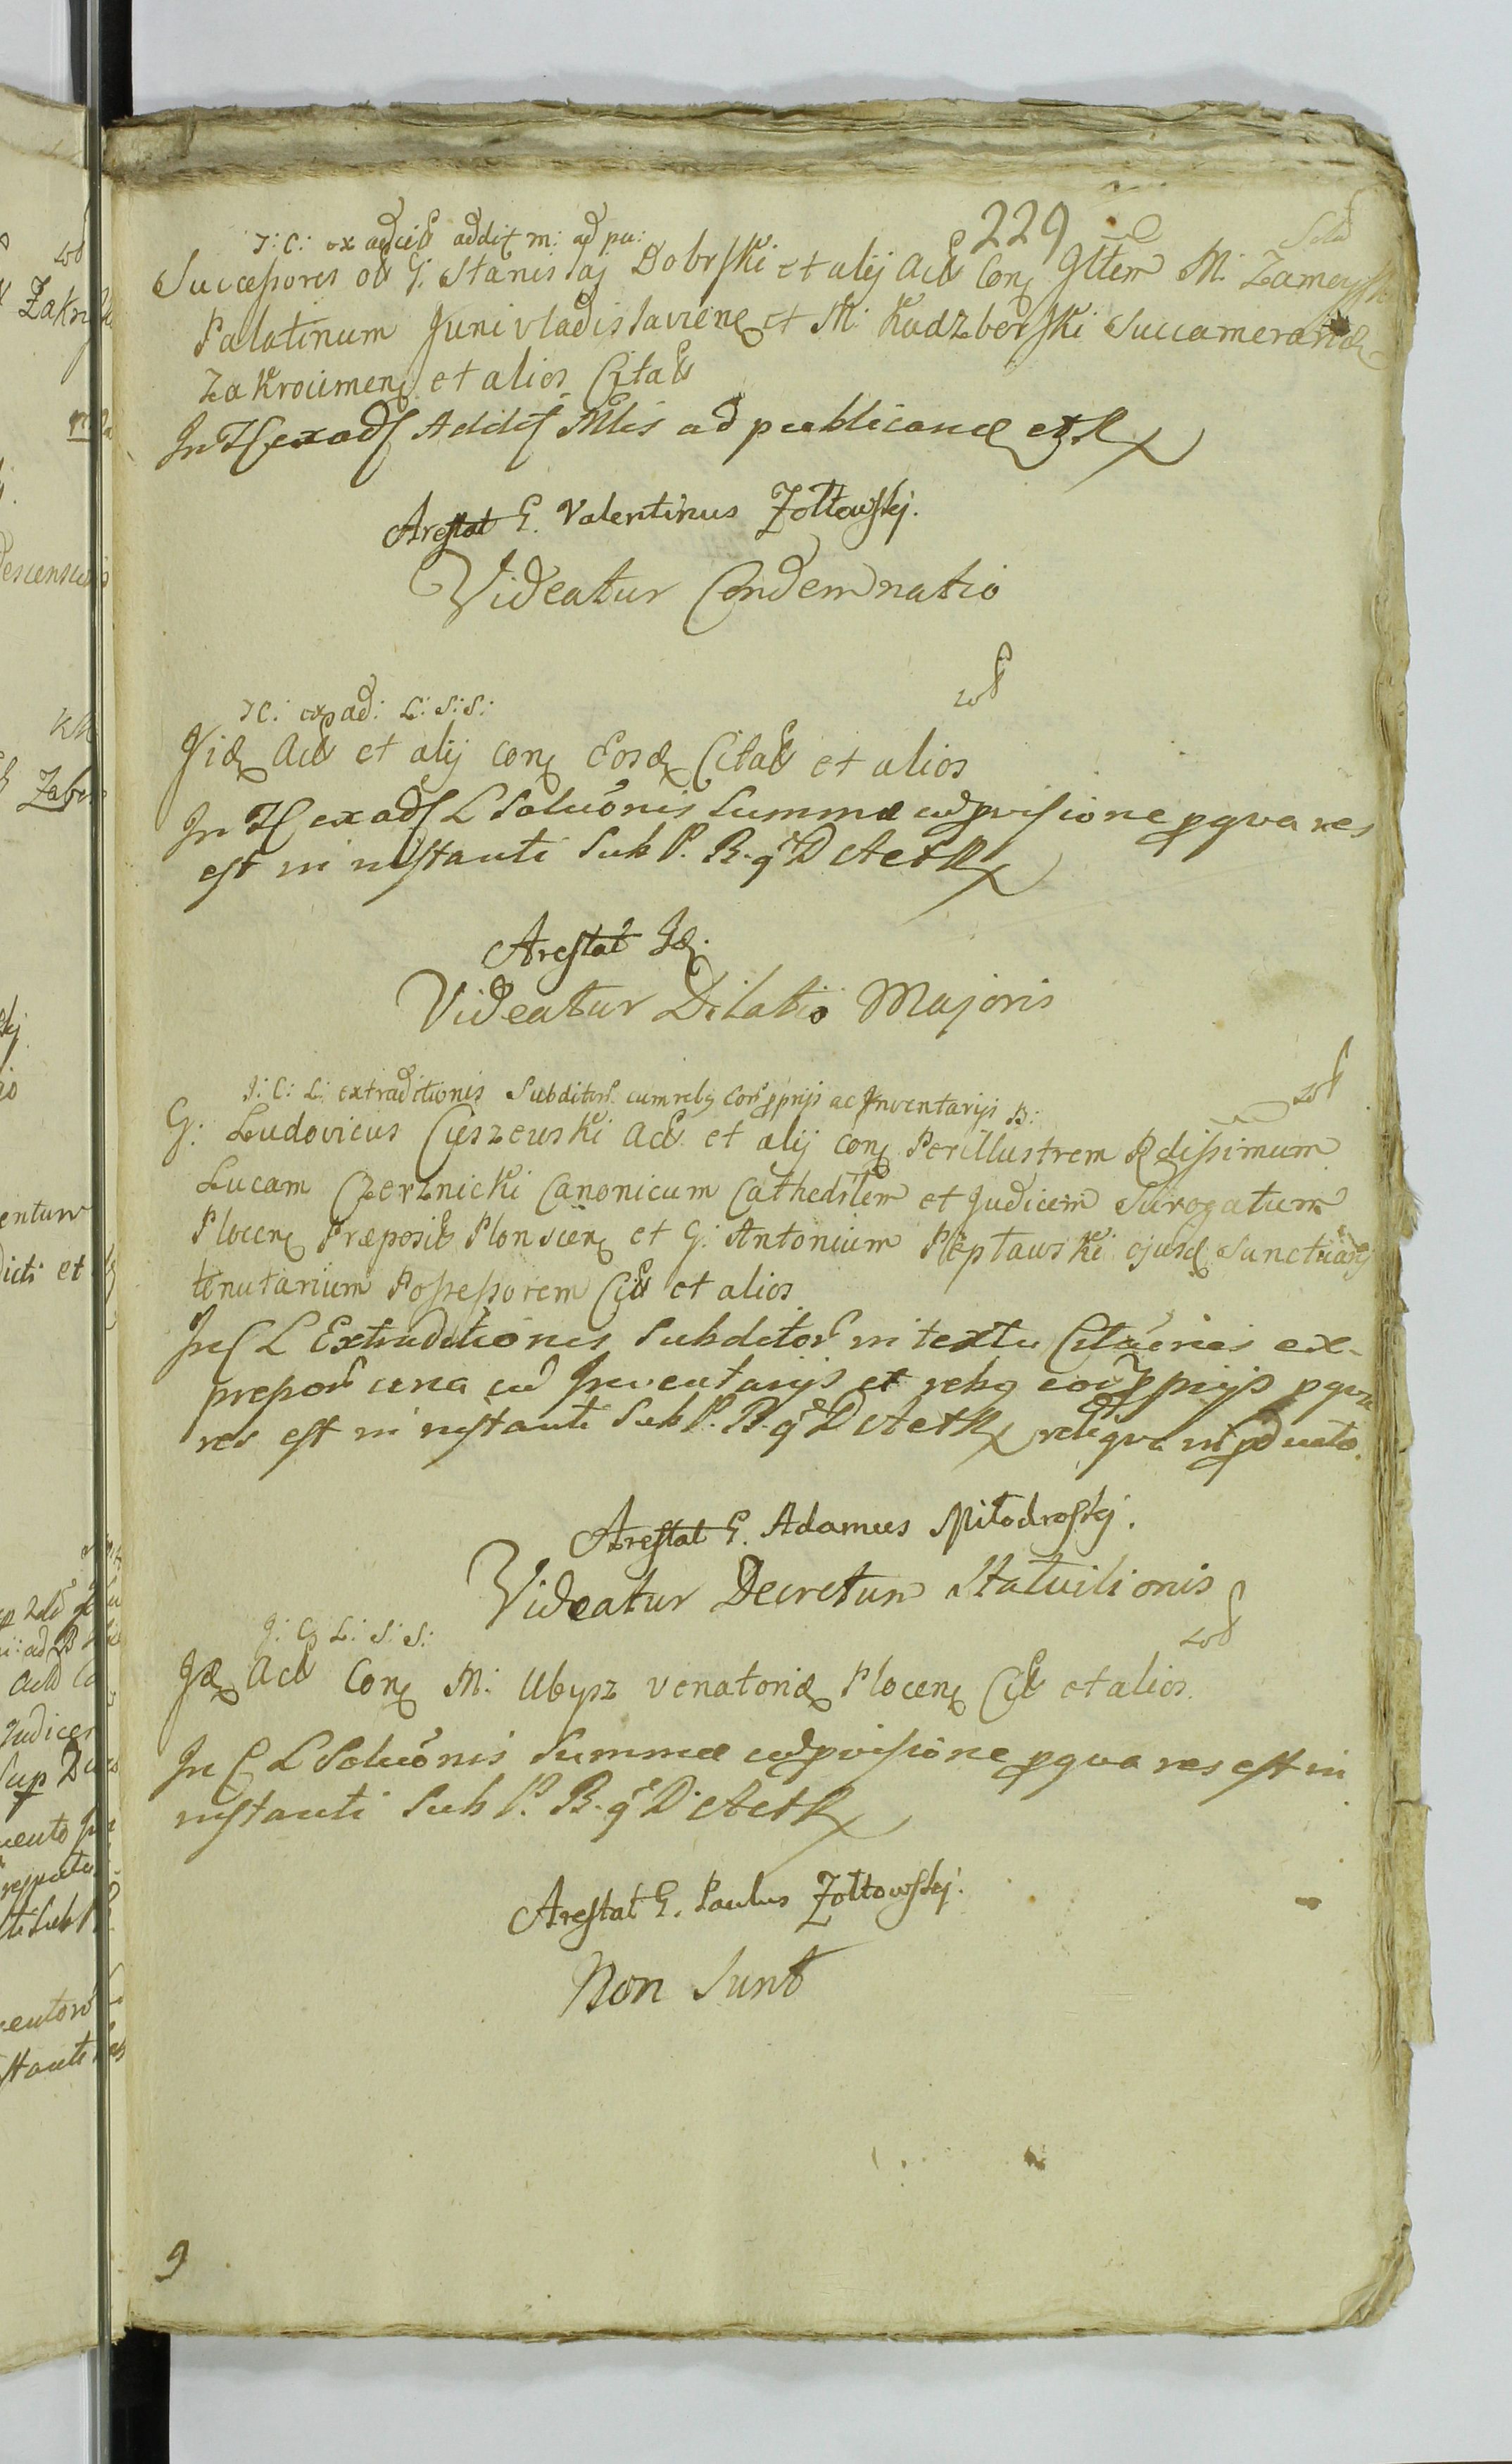 229
J: C: ex adcit addit m: ad pu:
Successores ol G: Stanislaj Dobrski et alij Act Conq Illem M: Zamoyski
Palatinum Junivladislaviensq et M: Kadzberski Succamerarid
Zakrocimenq et alios Citat
In T exads Addit Mlis ad publicand etR
Arestat G. Valentinus Żołtowskj.
Videatur Condemnatio
sol
JC: exad: L: S: S:
Jid Act et alij conq Eosd Citat et alios
In T exads L Soluonis Summæ cu provisione pqva res
est in instanti Sub P. B. q D ActR
Arestat Id.
Videatur Dilatio Majoris
sol
J: C: L: extraditionis Subditor cum rebq cor pprijs ac Inventarijs B:
G: Ludovicus Cieszewski Act et alij conq Perillustrem Rdissimum
Lucam Czerznicki Canonicum Cathedrlem et Judicem Surogatum
Plocenq Præposit Plonscenq et G: Antonium Neptawski ejusd Sanctuarij
tenutarium Possessorem Cit et alios
In C L Extraditionis Subditor in textu Citaonis ex-
pressor una cu Inventarijs et rebq eor pprijs pqva
res est in instanti Sub P. B. q D ActR reliqva in pducto.
Arestat G. Adamus Miłodroskj.
Videatur Decretum Statuitionis
sol
J: C: L: S: S:
Jd Act Conq M: Ubysz Venatorid Plocenq Cit et alios
In C L Soluonis Summæ cu provisione pqva res est in
instanti Sub P. B. q D ActR
Arestat G. Paulus Żołtowskj.
Non Sunt
9